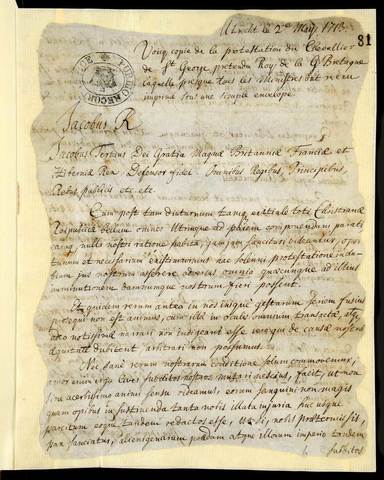 Utrecht le 2e May 1713.
81
Voicy copie de la protestation du Chevallier
de St George pretendu Roy de la G. Bretagne
laquelle presque tous les Ministres ont receu
imprimé sous une simple envelope
PUBLIC RECORD OFFICE
Jacobus R
Jacobus Tertius Dei Gratia Magnæ Britanniæ Franciæ et
Hiberniæ Rex Defensor fidei. Omnibus Regibus, Principibus,
Rebus publicis etc. etc.
Cum post tam diuturnum tamq. exitiale toti Christianæ
Reipublicæ bellum omnes utrinque ad pacem componendam parati
eamq. nulla nostri ratione habita, jam jam sancituri videantur, opor-
tunum et necessarium existimavimus hac solemni protestatione indu-
bium jus nostrum asserere adversus omnia quæcunque ad illius
imminutionem damnumque nostrum fieri possent.
Et quidem rerum antea in nos iniquè gestarum seriem fusius
persequi non est animus, cum illæ in oculis omnium transactæ, atq.
adeo notissimæ narrari non indigeant esse neque de causæ nostræ
æquitate dubitent arbitrari non possumus.
Nec sane rerum nostrarum conditione solum commovemur,
amor enim erga suos subditos nostros mutari nescius, facit, ut non
sine acerbissimo animi sensu videamus, eorum sanguini non magis
quam opibus in sustinenda tanta nobis illata injuria hucusque
parcitum eoque tandem redactos esse, ut si, nobis prætermissis,
pax sanciatur, alienigenarum prædam atque illorum imperio tandem
subditos